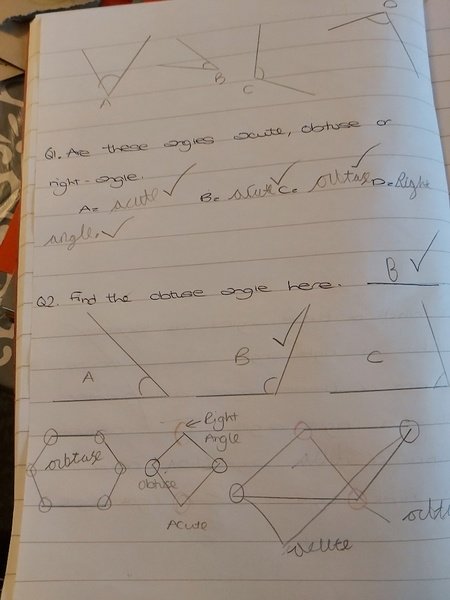 A B C D
Q1. Are these angles acute, obtuse or
right-angle.
A= acute B= acute C= orbtuse D= Right
angle.
Q2. Find the obtuse angle here. B
A B C
← Right
Angle
orbtuse
obtuse
Acute
acute